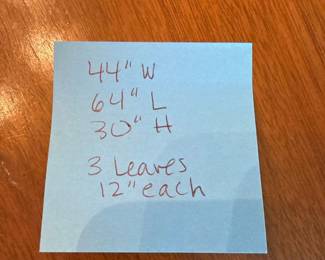 44" W
64" L
30" H
3 Leaves
12" each